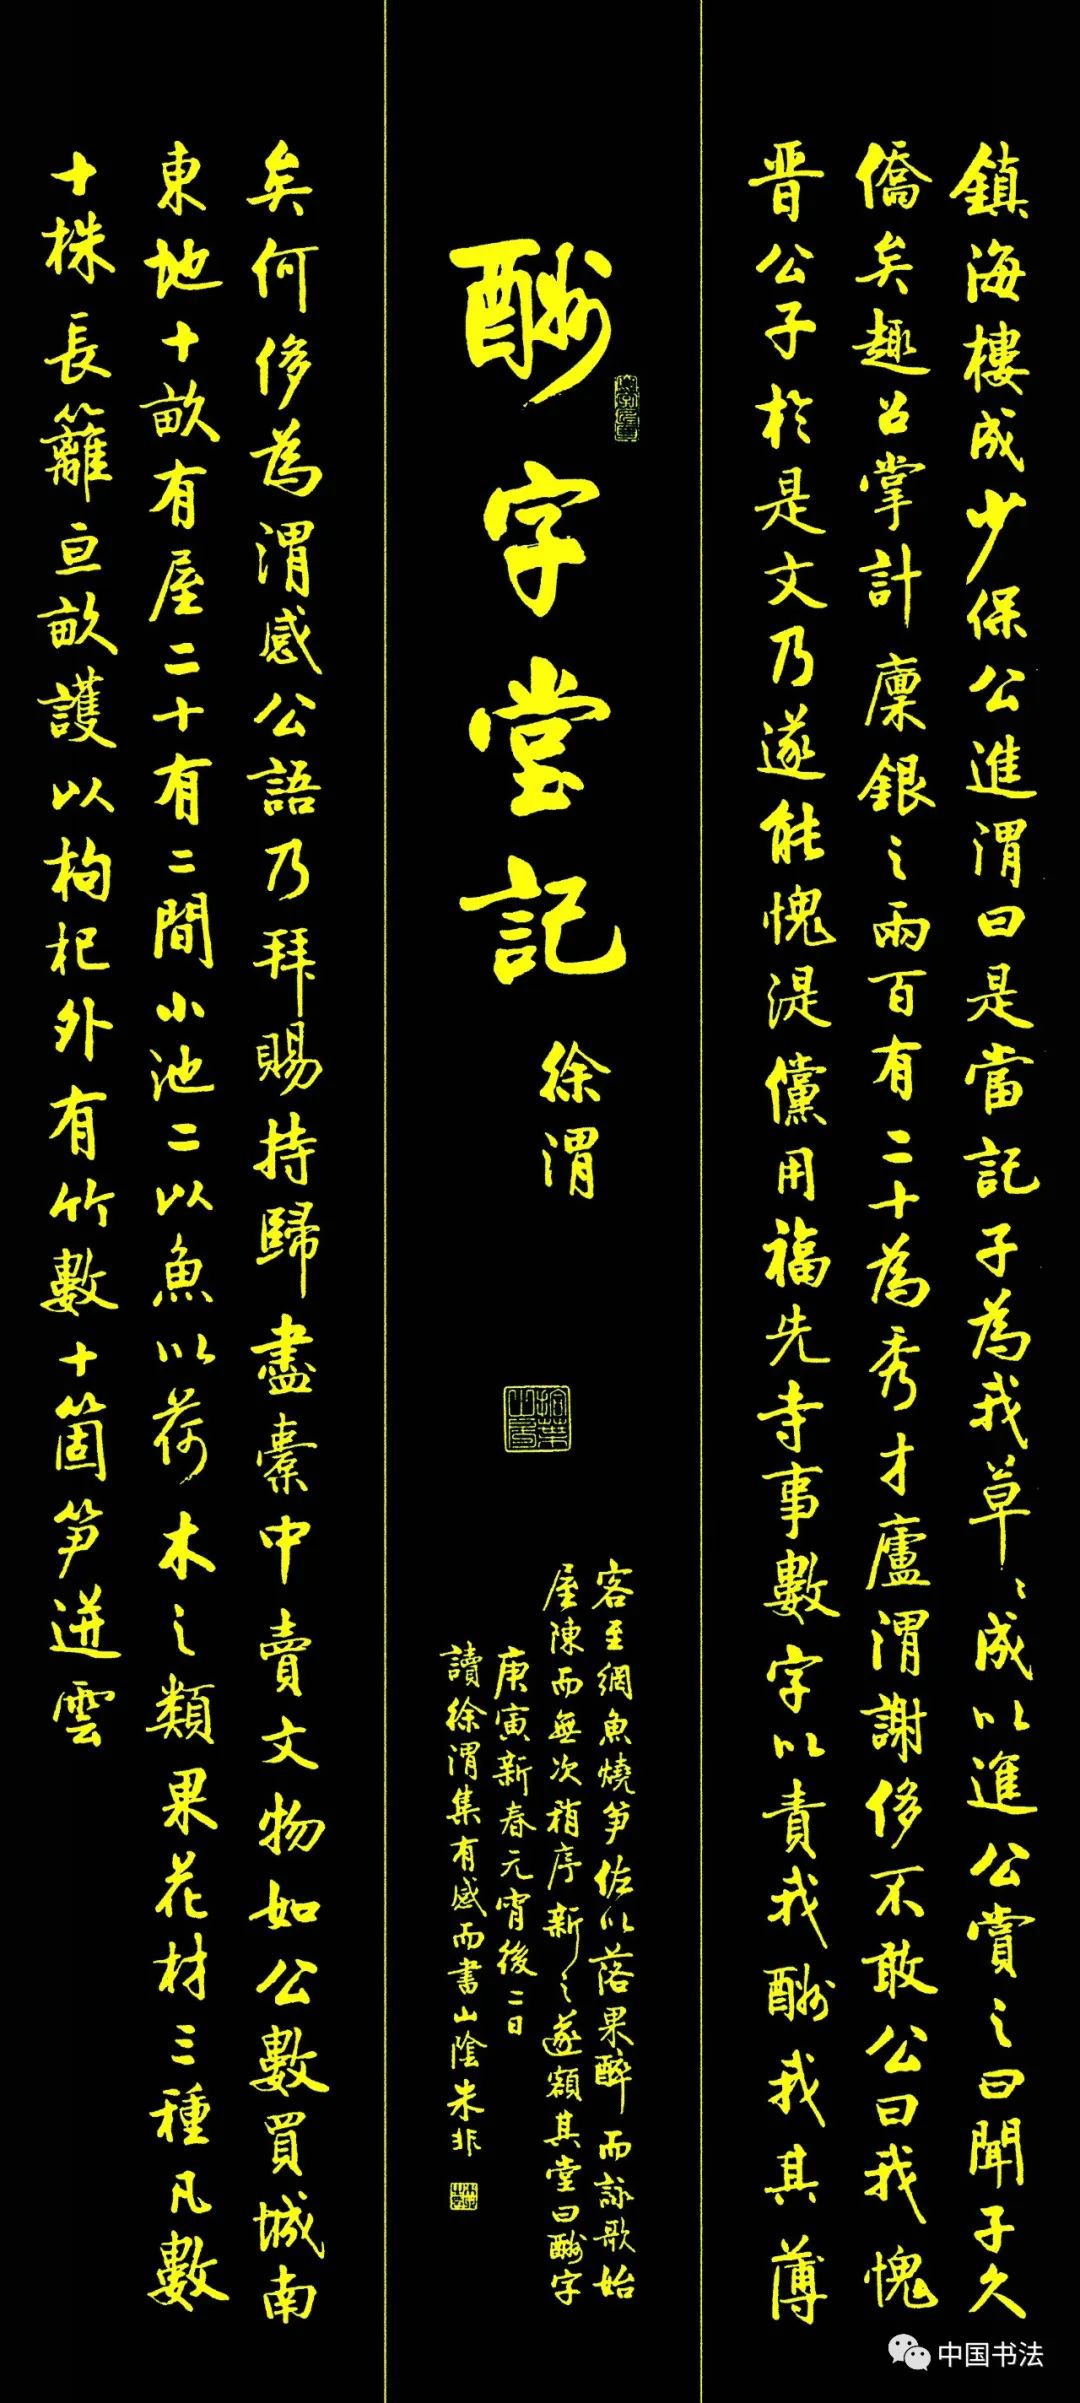 鎮海樓成少保公進渭曰是當記子為我草〻成以進公賞之曰聞子久
僑矣趣召掌計廩銀之兩百有二十為秀才廬渭謝侈不敢公曰我愧
晋公子於是文乃遂能愧湜儻用福先寺事數字以責我酬我其薄
酬字堂記
徐渭
客至網魚燒笋佐以落果醉而詠歌始
屋陳而無次稍序新之遂額其堂曰酬字
庚寅新春元宵後二日
讀徐渭集有感而書山陰朱非
矣何侈為渭感公語乃拜賜持歸盡橐中賣文物如公數買城南
東地十畝有屋二十有二間小池二以魚以荷木之類果花材三種凡數
十株長籬亘畝護以枸杞外有竹數十箇笋迸雲
中国书法